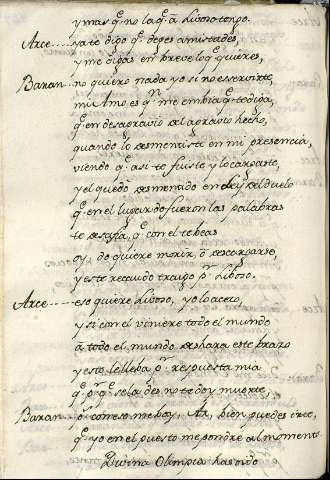 y mas q̃ no la q̃ a Lidoso
Arce......ya te digo q̃ deges amistades,
y me digas en breve lo q̃ quieres,
Baran....no quiero nada yo si no es servirte,
mi Amo es qn me embia a q̃ te diga,
q̃ en desagravio del agravio hecho,
quando lo desmentiste en mi presencia,
viendo q̃ asi te fuiste y lo
y el quedó desmentido en ley del duelo
q̃ en el lugar do fueron las palabras
te q̃ con el te beas
do quiere morir, o
y este recaudo traigo pr Lidoso.
Arce......eso quiere Lidoso, yo lo acepto,
y si con el viniere todo el mundo
a todo el mundo deshara este brazo
y esto le lleba pr respuesta mia
q̃ pr q̃ se la des no te doy muerte,
Baran....pr con eso me boy, Ar, bien puedes irte,
q̃ yo en el puesto me pondre al momento
Divina Olimpia ha sido